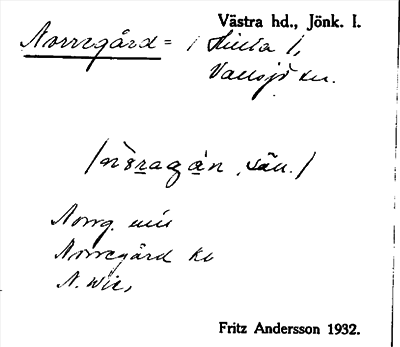 Västra hd., Jönk. l.
Norregård = 1 Hulta 1,
Vallsjö sn.
/nòragán, sån./
Norrg.
Norregård
N.
Fritz Andersson 1932.